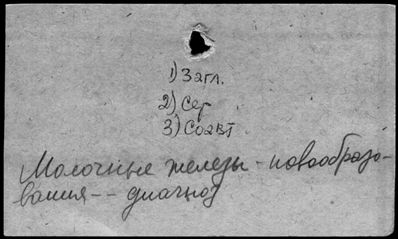 1) Загл.
2) Сер
3) Соавт
Молочные железы - новообразо-
вания -- диагноз